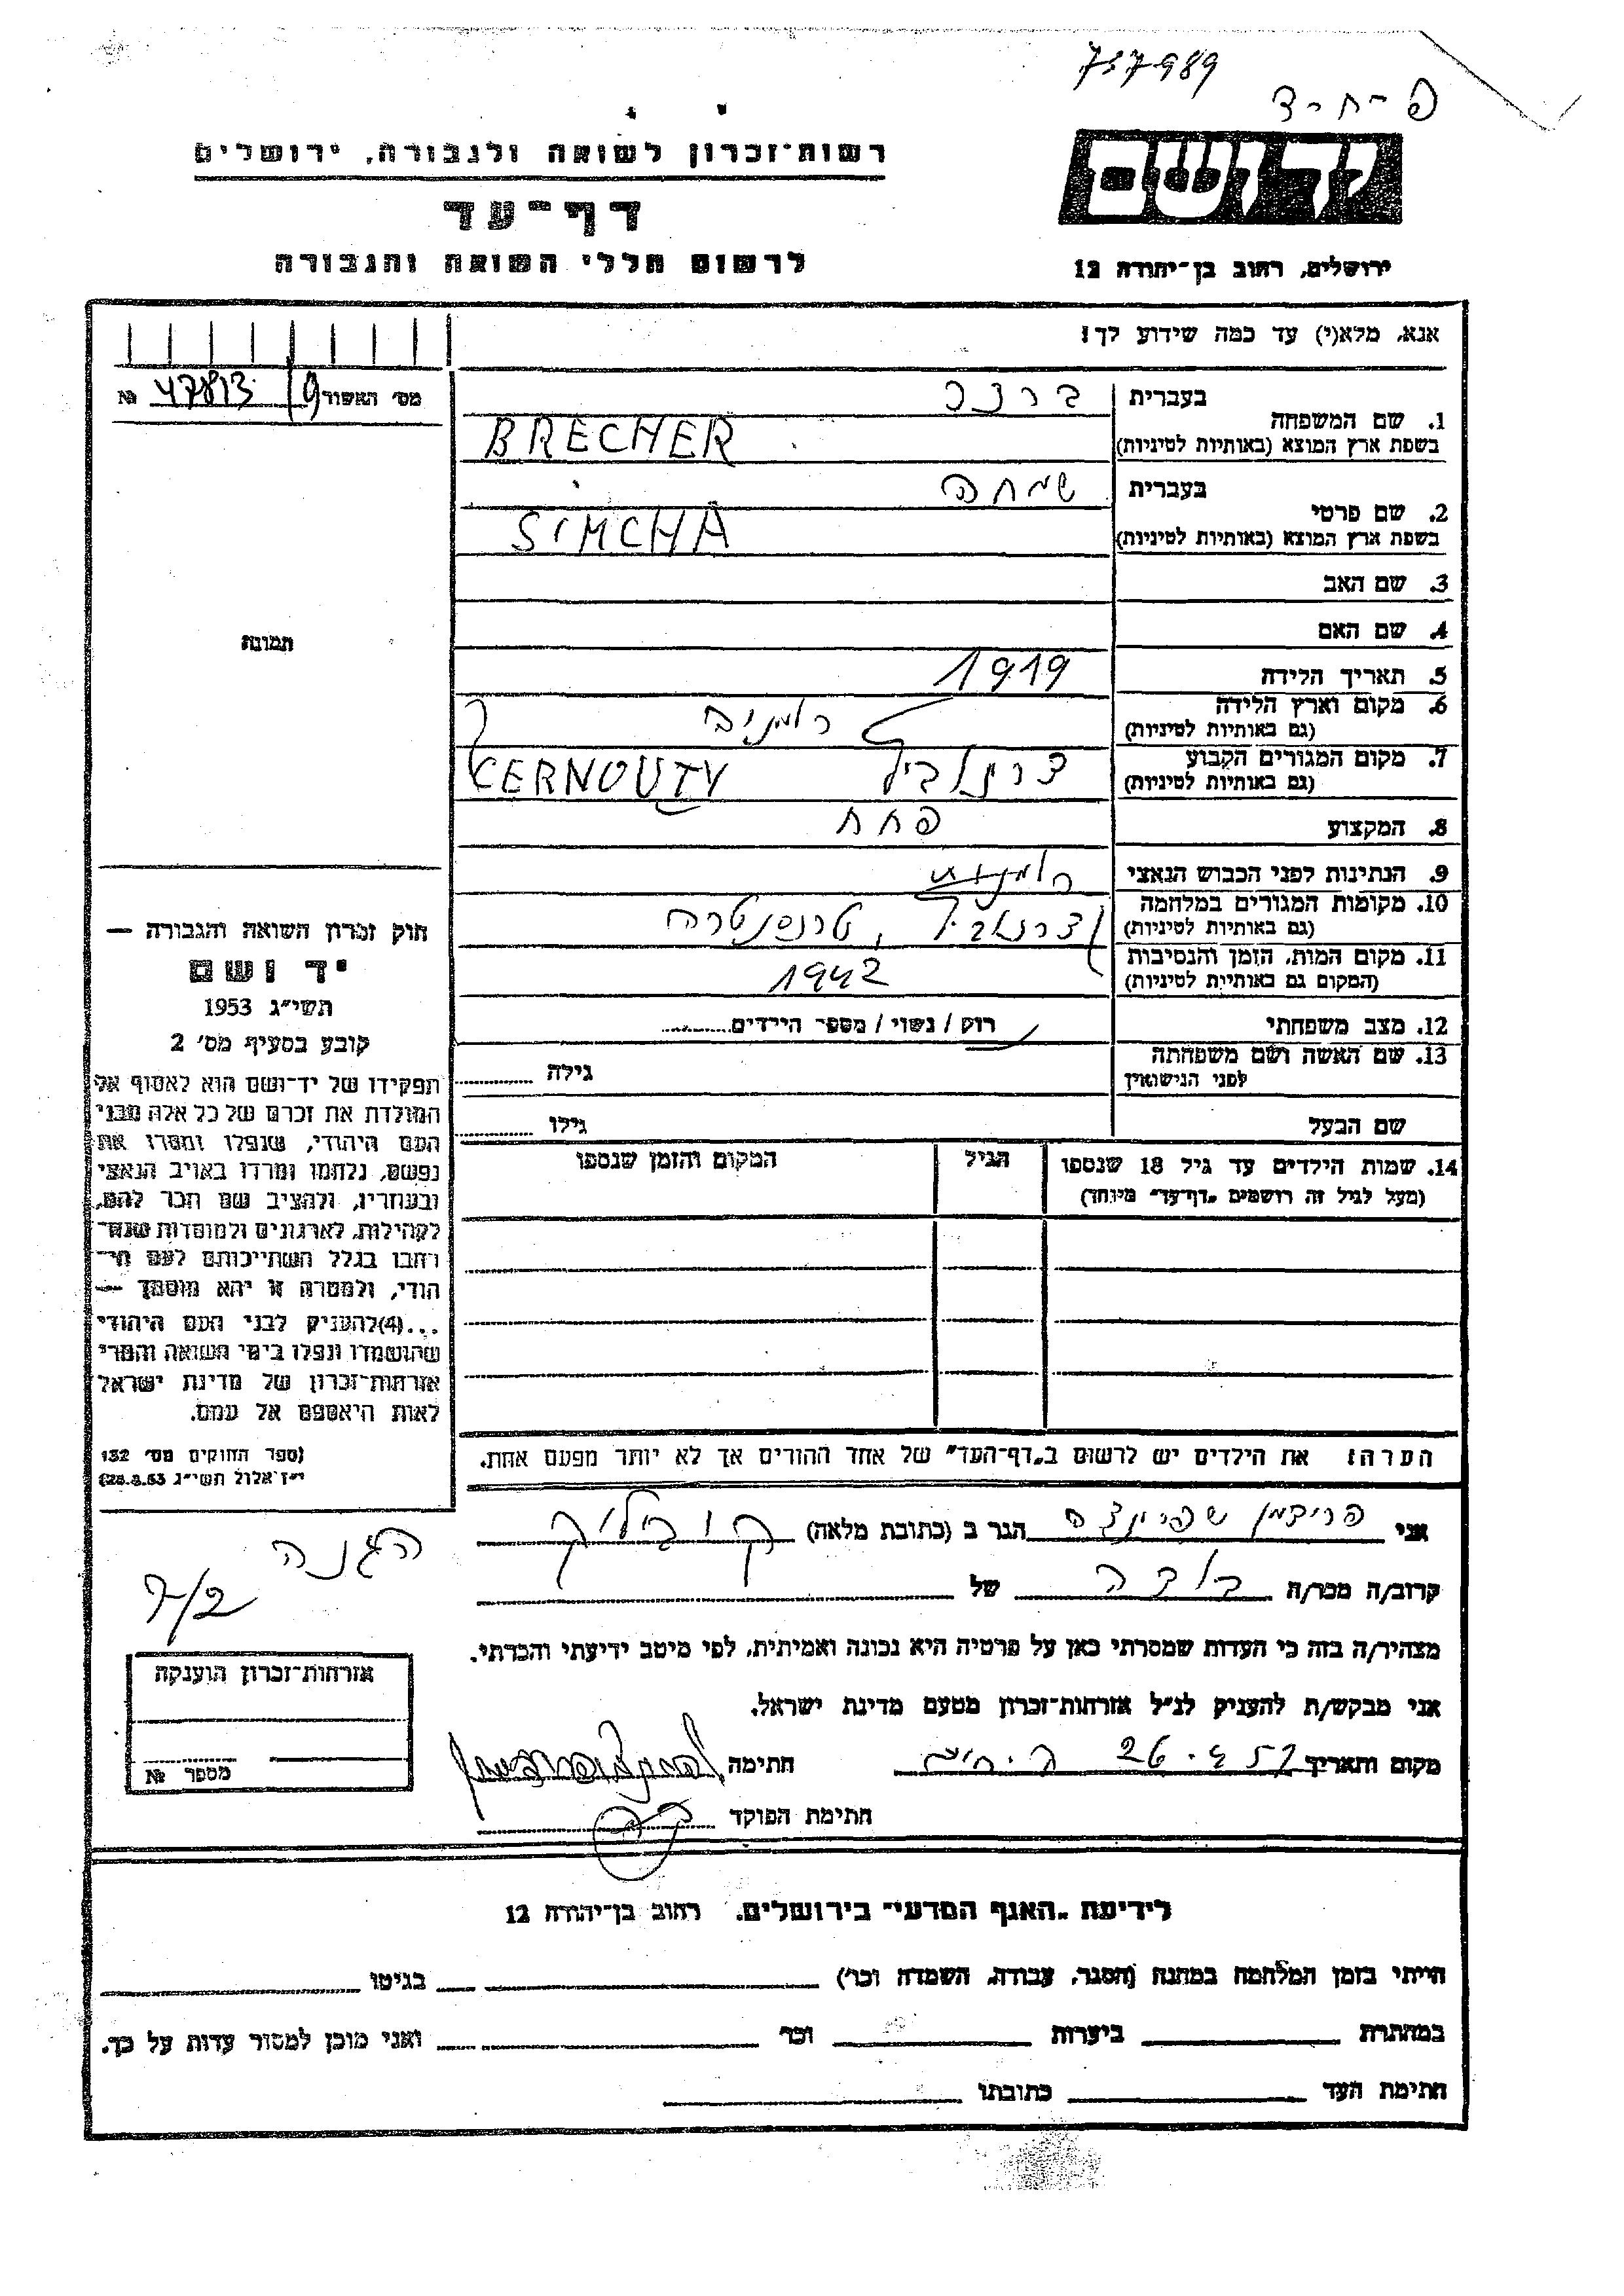 737989
פ-ח-ד
רשות־זכרון לשואה ולגבורה, ירושלים
דף־עד
לרשום חללי השואה והגבורה
יד ושם
ירושלים, רחוב בן־יהודה 12
אנא, מלא(י) עד כמה שידוע לך!
מס׳ האשור 9/ 47813 №
בעברית ברכר
1. שם המשפחה
בשפת ארץ המוצא (באותיות לטיניות) BRECHER
בעברית שמחה
2. שם פרטי
בשפת ארץ המוצא (באותיות לטיניות) SIMCHA
3. שם האב
4. שם האם
תמונה
5. תאריך הלידה 1919
6. מקום וארץ הלידה רומניה
(גם באותיות לטיניות)
7. מקום המגורים הקבוע CERNOUTY
(גם באותיות לטיניות)
8. המקצוע פחח
9. הנתינות לפני הכבוש הנאצי רומנית
10. מקומות המגורים במלחמה
(גם באותיות לטיניות)
11. מקום המות, הזמן והנסיבות 1942
(המקום גם באותיות לטיניות)
12. מצב משפחתי רוק / נשוי / מספר הילדים
13. שם האשה ושם משפחתה גילה
לפני הנישואין
שם הבעל גילו
14. שמות הילדים עד גיל 18 שנספו הגיל המקום והזמן שנספו
(מעל לגיל זה רושמים „דף־עד״ מיוחד)
הערה: את הילדים יש לרשום ב„דף־העד״ של אחד ההורים אך לא יותר מפעם אחת.
חוק זכרון השואה והגבורה —
יד ושם
תשי״ג 1953
קובע בסעיף מס׳ 2
תפקידו של יד־ושם הוא לאסוף אל
המולדת את זכרם של כל אלה מבני
העם היהודי, שנפלו ומסרו את
נפשם, נלחמו ומרדו באויב הנאצי
ובעוזריו, ולהציב שם וזכר להם,
לקהילות, לארגונים ולמוסדות שנח־
רבו בגלל השתייכותם לעם הי־
הודי, ולמטרה זו יהא מוסמך —
...(4)להעניק לבני העם היהודי
שהושמדו ונפלו בימי השואה והמרי
אזרחות־זכרון של מדינת ישראל
לאות היאספם אל עמם.
(ספר החוקים מס׳ 132
י״ז אלול תשי״ג 28.8.53)
אני פרידמן שפרינצה הגר ב (כתובת מלאה) קוביליק
קרוב/ה מכר/ה בודה של
הגנה
7/2
מצהיר/ה בזה כי העדות שמסרתי כאן על פרטיה היא נכונה ואמיתית, לפי מיטב ידיעתי והכרתי.
אני מבקש/ת להעניק לנ״ל אזרחות־זכרון מטעם מדינת ישראל.
מקום ותאריך 26.4.57 חתימה
חתימת הפוקד
אזרחות־זכרון הוענקה
מספר №
לידיעת „האגף המדעי״ בירושלים, רחוב בן־יהודה 12
הייתי בזמן המלחמה במחנה (הסגר, עבודה, השמדה וכו׳) בגיטו
במחתרת ביערות וכו׳ ואני מוכן למסור עדות על כך.
חתימת העד כתובתו